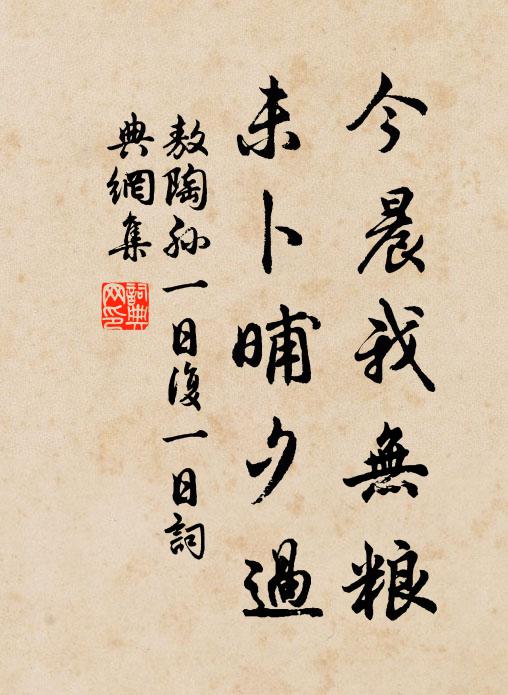 今晨我無粮
未卜晡夕過
敖陶孙一日復一日詞
典網集
詞典
网印